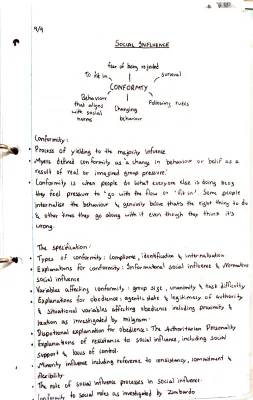 9/9
SOCIAL INFLUENCE
fear of being rejected
To fit in
survival
CONFORMITY
Behaviour that aligns with social norms
Changing behaviour
Following rules
Conformity:
• Process of yielding to the majority influence
• Myers defined conformity as 'a change in behaviour or belief as a
result of real or imagined group pressure.'
• Conformity is when people do what everyone else is doing
they feel pressure to 'go with the flow or 'fit in'. Some people
internalise the behaviour & genuinly belive thats the right thing to do
& other times they go along with it even though they think it's
wrong.
The specification:
• Types of conformity: compliance, identification & internalisation
• Explanations for conformity: Informational social influence & Normative
social influence
• Variables affecting conformity: group size, unanimity & task difficulty
• Explanations for obedience: agentic state & legitimacy of authority
& Situational variables affecting obedience including proximity &
location as investigated by milgram.
• Dispositional explanation for obedience: The Authoritarian Personality
• Explanations of resistance to social influence, including social
support & locus of control.
• Minority influence including reference to consistency, commitment &
flexibility.
• The role of social influence processes in social influence.
• Conformity to social roles as investigated by Zimbardo